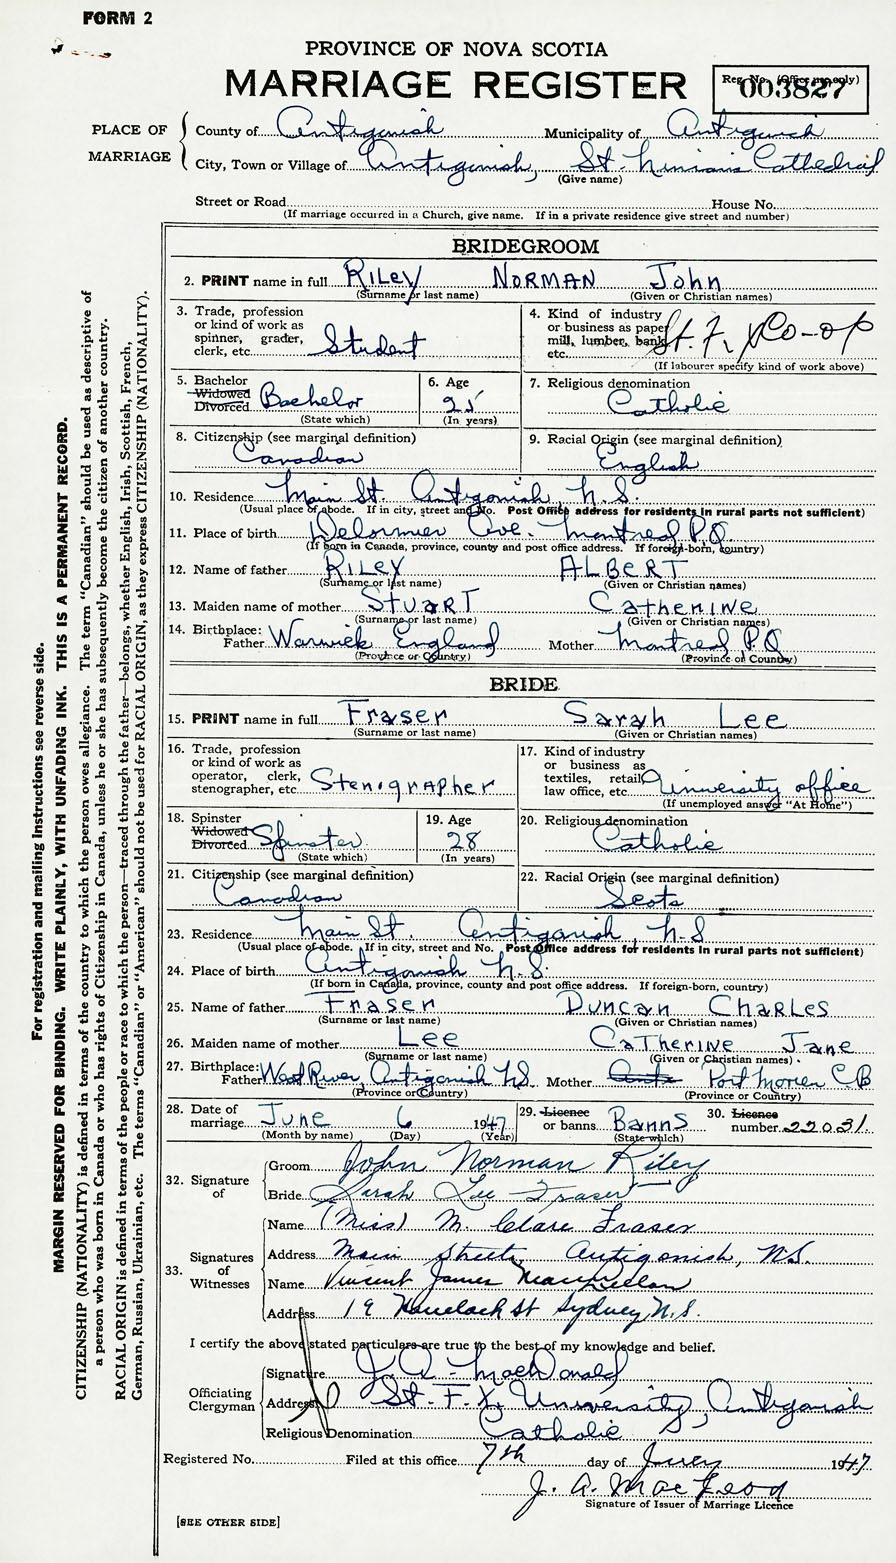 FORM 2
PROVINCE OF NOVA SCOTIA
MARRIAGE REGISTER
Reg. No. (Office use only)
003827
PLACE OF MARRIAGE
County of Antigonish Municipality of Antigonish
City, Town or Village of Antigonish, St. Ninian's Cathedral
(Give name)
Street or Road House No.
(If marriage occurred in a Church, give name. If in a private residence give street and number)
BRIDEGROOM
2. PRINT name in full RILEY NORMAN John
(Surname or last name) (Given or Christian names)
3. Trade, profession or kind of work as spinner, grader, clerk, etc. Student
4. Kind of industry or business as paper mill, lumber, bank, etc. St. F. X Co-op
(If labourer specify kind of work above)
5. Bachelor Widowed Divorced Bachelor
(State which)
6. Age 25
(In years)
7. Religious denomination
Catholic
8. Citizenship (see marginal definition)
Canadian
9. Racial Origin (see marginal definition)
English
10. Residence Main St. Antigonish, N.S.
(Usual place of abode. If in city, street and No. Post Office address for residents in rural parts not sufficient)
11. Place of birth Delormier Ave. Montreal P.Q.
(If born in Canada, province, county and post office address. If foreign-born, country)
12. Name of father RILEY ALBERT
(Surname or last name) (Given or Christian names)
13. Maiden name of mother STUART CATHERINE
(Surname or last name) (Given or Christian names)
14. Birthplace: Father Warwick England Mother Montreal P.Q
(Province or Country) (Province or Country)
BRIDE
15. PRINT name in full Fraser Sarah Lee
(Surname or last name) (Given or Christian names)
16. Trade, profession or kind of work as operator, clerk, stenographer, etc. Stenographer
17. Kind of industry or business as textiles, retail, law office, etc. University office
(If unemployed answer "At Home")
18. Spinster Widowed Divorced Spinster
(State which)
19. Age 28
(In years)
20. Religious denomination
Catholic
21. Citizenship (see marginal definition)
Canadian
22. Racial Origin (see marginal definition)
Scots
23. Residence Main St. Antigonish, N.S
(Usual place of abode. If in city, street and No. Post Office address for residents in rural parts not sufficient)
24. Place of birth Antigonish N.S.
(If born in Canada, province, county and post office address. If foreign-born, country)
25. Name of father Fraser DUNCAN CHARLES
(Surname or last name) (Given or Christian names)
26. Maiden name of mother LEE CATHERINE JANE
(Surname or last name) (Given or Christian names)
27. Birthplace: Father West River, Antigonish N.S. Mother Port Morien C B
(Province or Country) (Province or Country)
28. Date of marriage June 6 1947
(Month by name) (Day) (Year)
29. Licence or banns Banns
(State which)
30. Licence number 22031
32. Signature of
Groom John Norman Riley
Bride Sarah Lee Fraser
33. Signatures of Witnesses
Name (Miss) M. Clare Fraser
Address Main Street, Antigonish, N.S.
Name Vincent James MacLellan
Address 19 Havelock St Sydney N.S.
I certify the above stated particulars are true to the best of my knowledge and belief.
Officiating Clergyman
Signature J. A. MacDonald
Address St. F. X. University, Antigonish
Religious Denomination Catholic
Registered No. Filed at this office 7th day of 1947
J. A. MacLeod
Signature of Issuer of Marriage Licence
[SEE OTHER SIDE]
For registration and mailing instructions see reverse side.
MARGIN RESERVED FOR BINDING. WRITE PLAINLY, WITH UNFADING INK. THIS IS A PERMANENT RECORD.
CITIZENSHIP (NATIONALITY) is defined in terms of the country to which the person owes allegiance. The term "Canadian" should be used as descriptive of
a person who was born in Canada or who has rights of Citizenship in Canada, unless he or she has subsequently become the citizen of another country.
RACIAL ORIGIN is defined in terms of the people or race to which the person—traced through the father—belongs, whether English, Irish, Scottish, French,
German, Russian, Ukrainian, etc. The terms "Canadian" or "American" should not be used for RACIAL ORIGIN, as they express CITIZENSHIP (NATIONALITY).